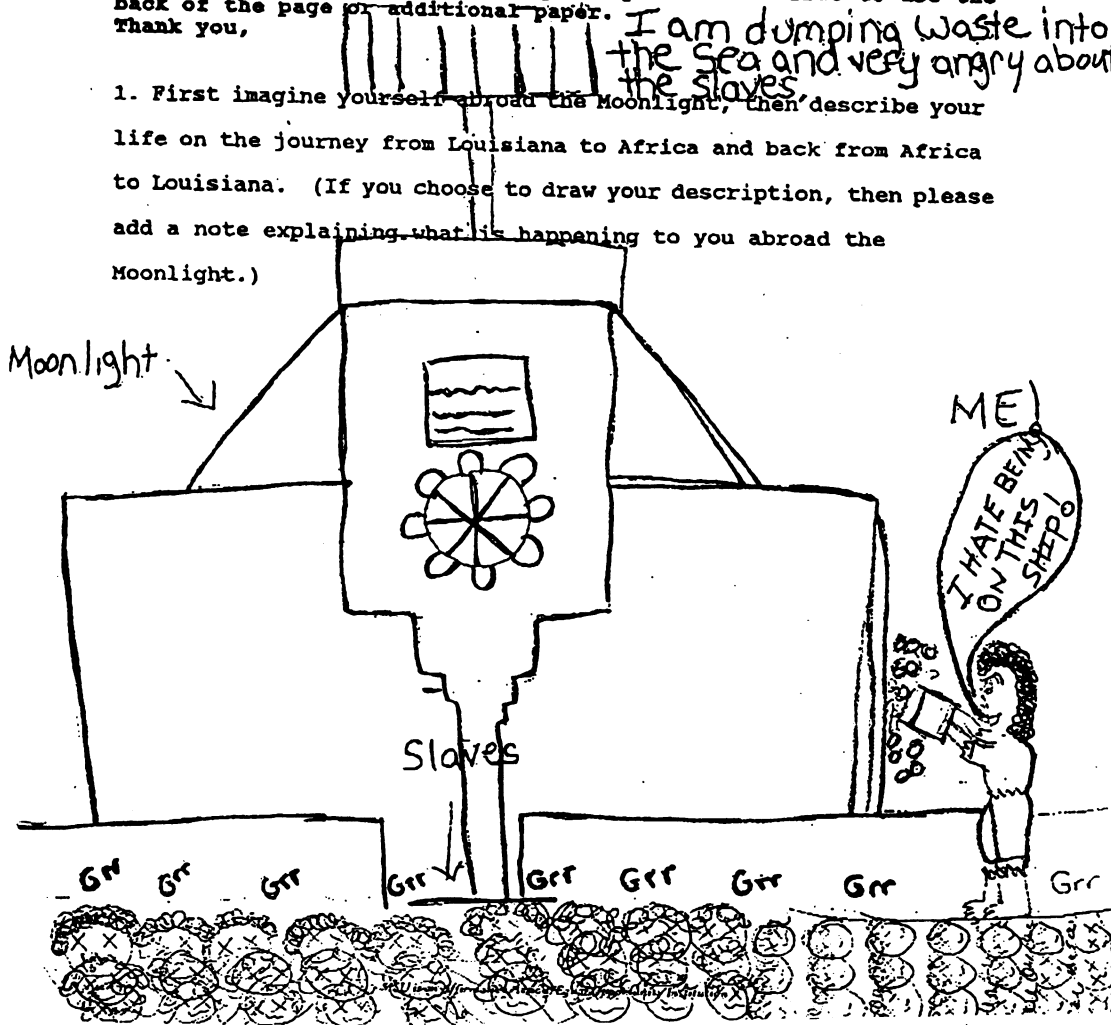 back of the page or additional paper.
Thank you,
I am dumping waste into
the sea and very angry about
the slaves.
1. First imagine yourself abroad the Moonlight, then describe your
life on the journey from Louisiana to Africa and back from Africa
to Louisiana. (If you choose to draw your description, then please
add a note explaining what is happening to you abroad the
Moonlight.)
Moonlight
ME
I HATE BEING
ON THIS
SHIP!
Slaves
Grr Grr Grr Grr Grr Grr Grr Grr Grr